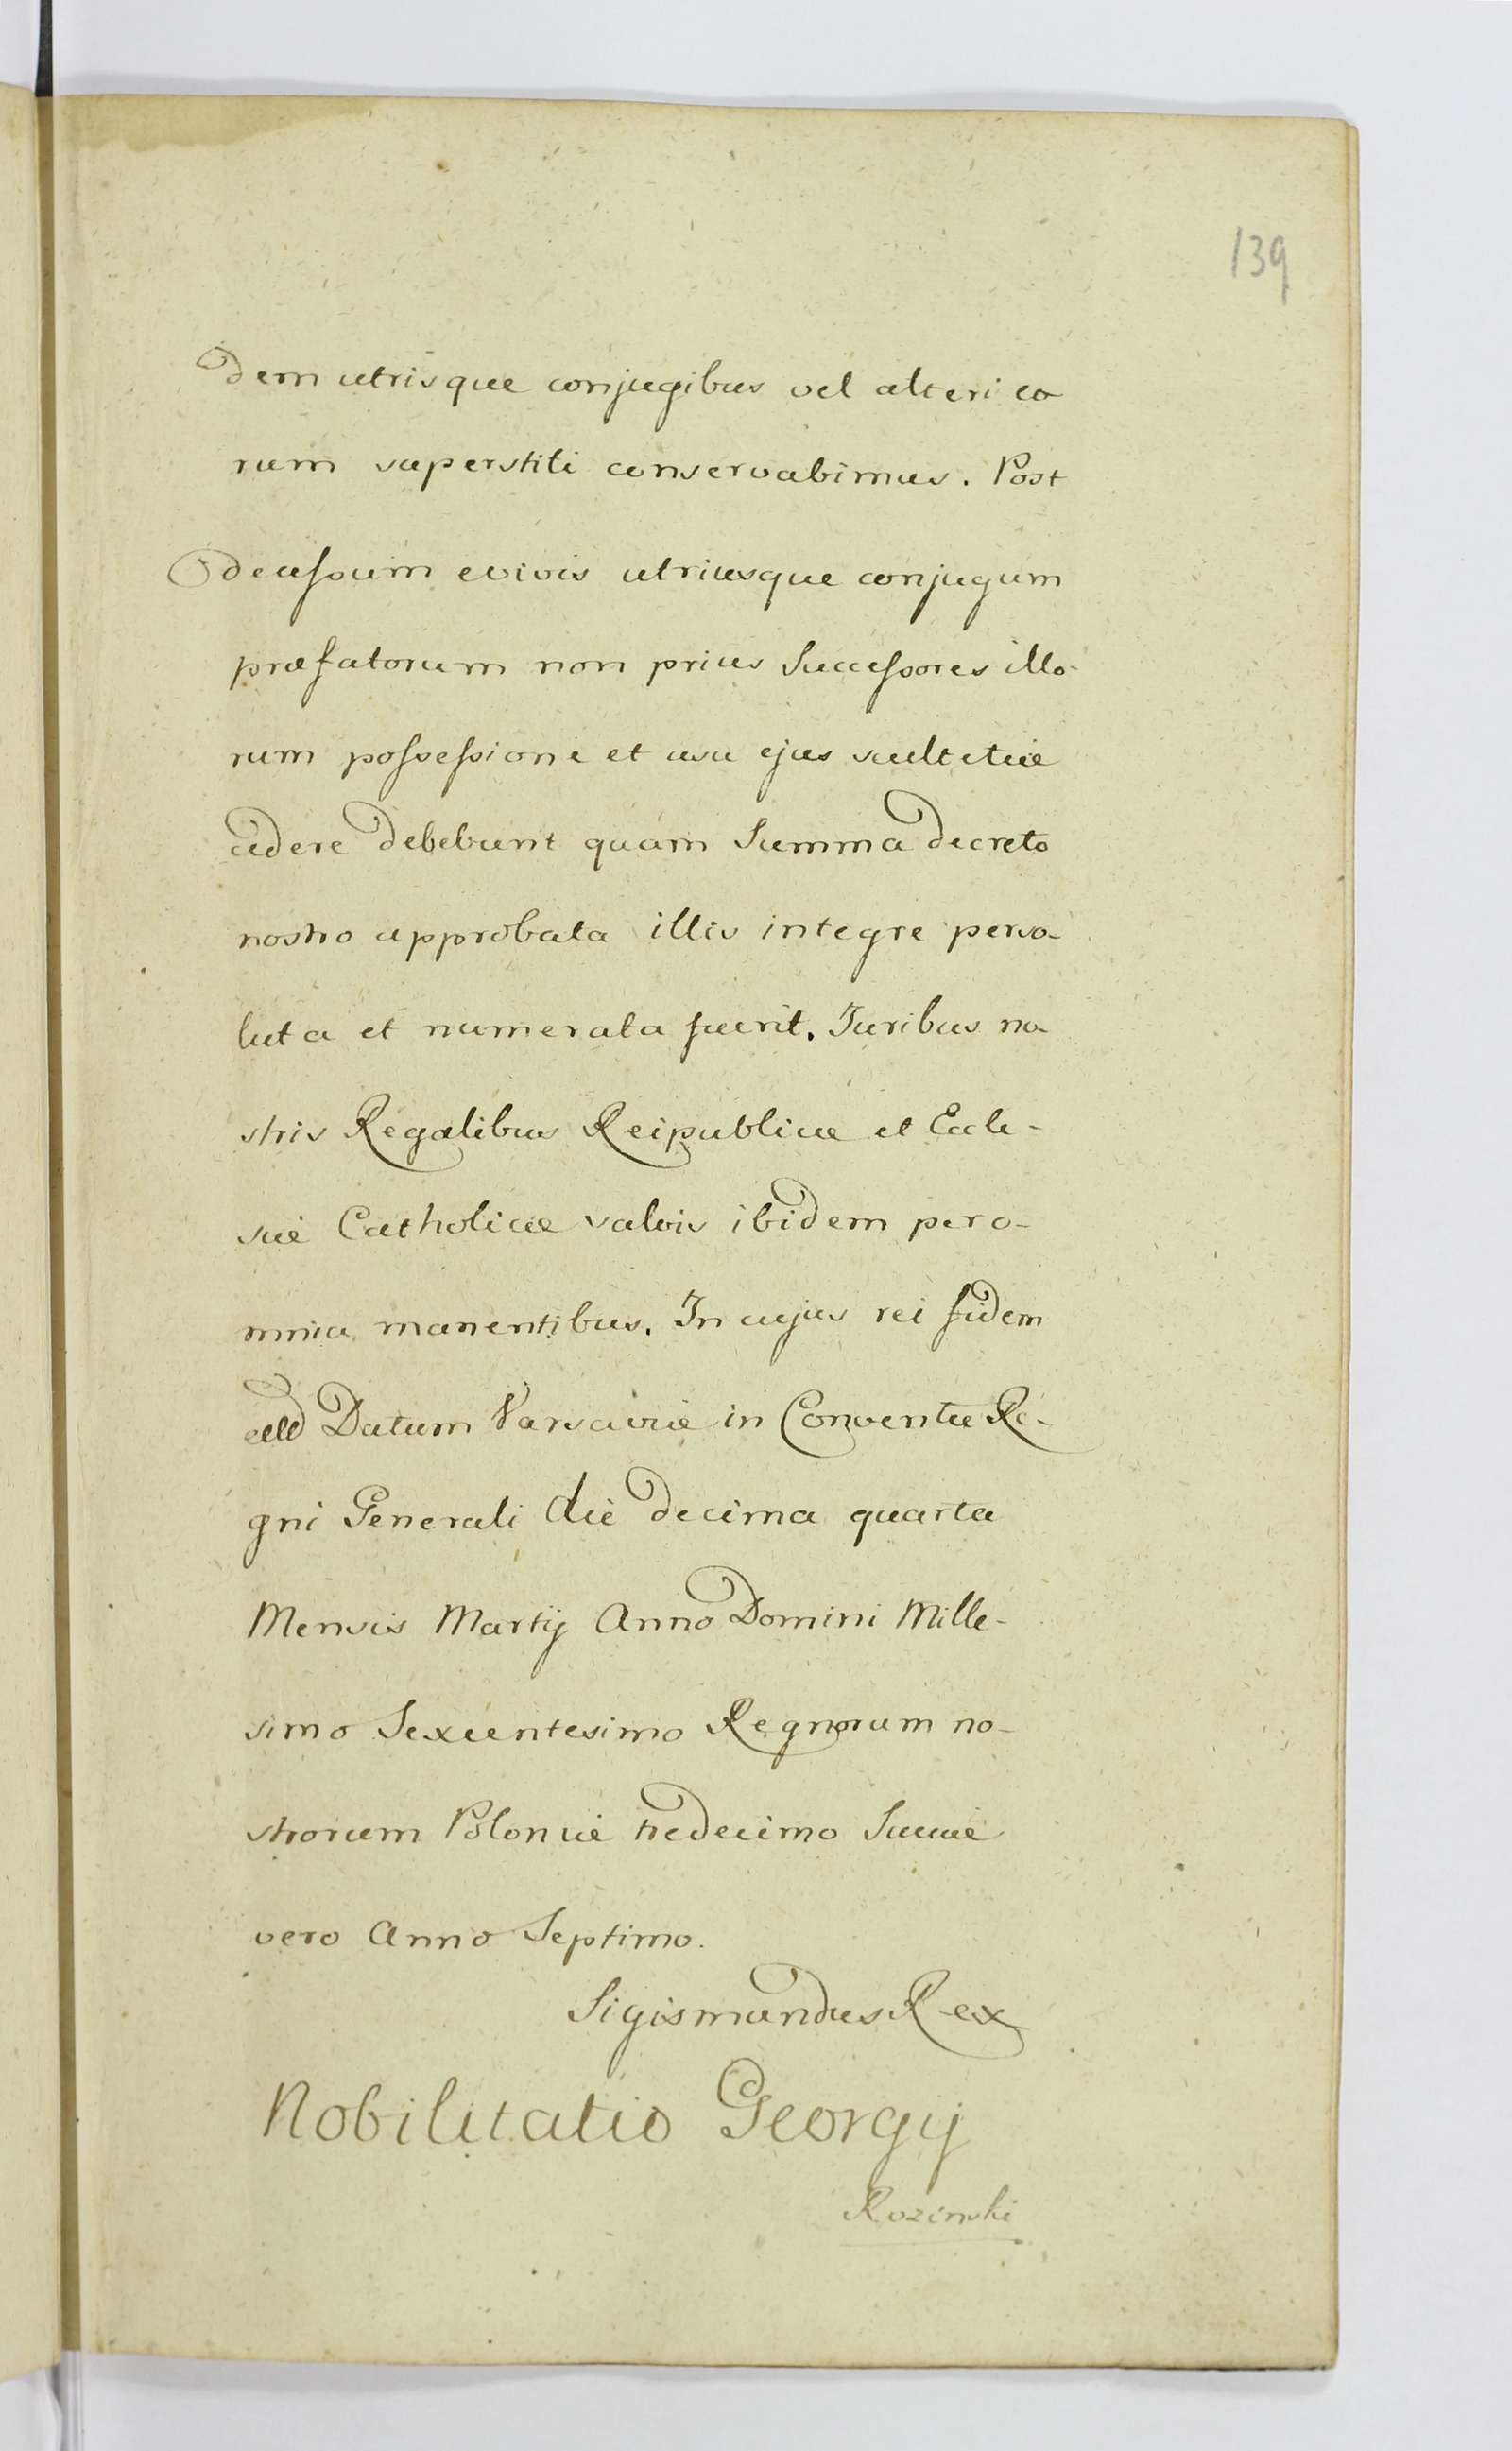 139
dem utrisque conjugibus vel alteri eo
rum superstiti conservabimus. Post
decessum e vivis utriusque conjugum
præfatorum non prius Successores illo-
rum possessione et usu ejus scultetiæ
cedere debebunt quam Summa decreto
nostro approbata illis integre perso-
luta et numerata fuerit. Juribus no
stris Regalibus Reipublicæ et Eccle-
siæ Catholicæ salvis ibidem pero-
mnia manentibus. In cujus rei fidem
Datum Varsaviæ in Conventu Re-
gni Generali die decima quarta
Mensis Martij Anno Domini Mille-
simo Sexcentesimo Regnorum no-
strorum Poloniæ tredecimo Sueciæ
vero Anno Septimo.
Sigismundus Rex
Nobilitatio Georgij
Rozinski